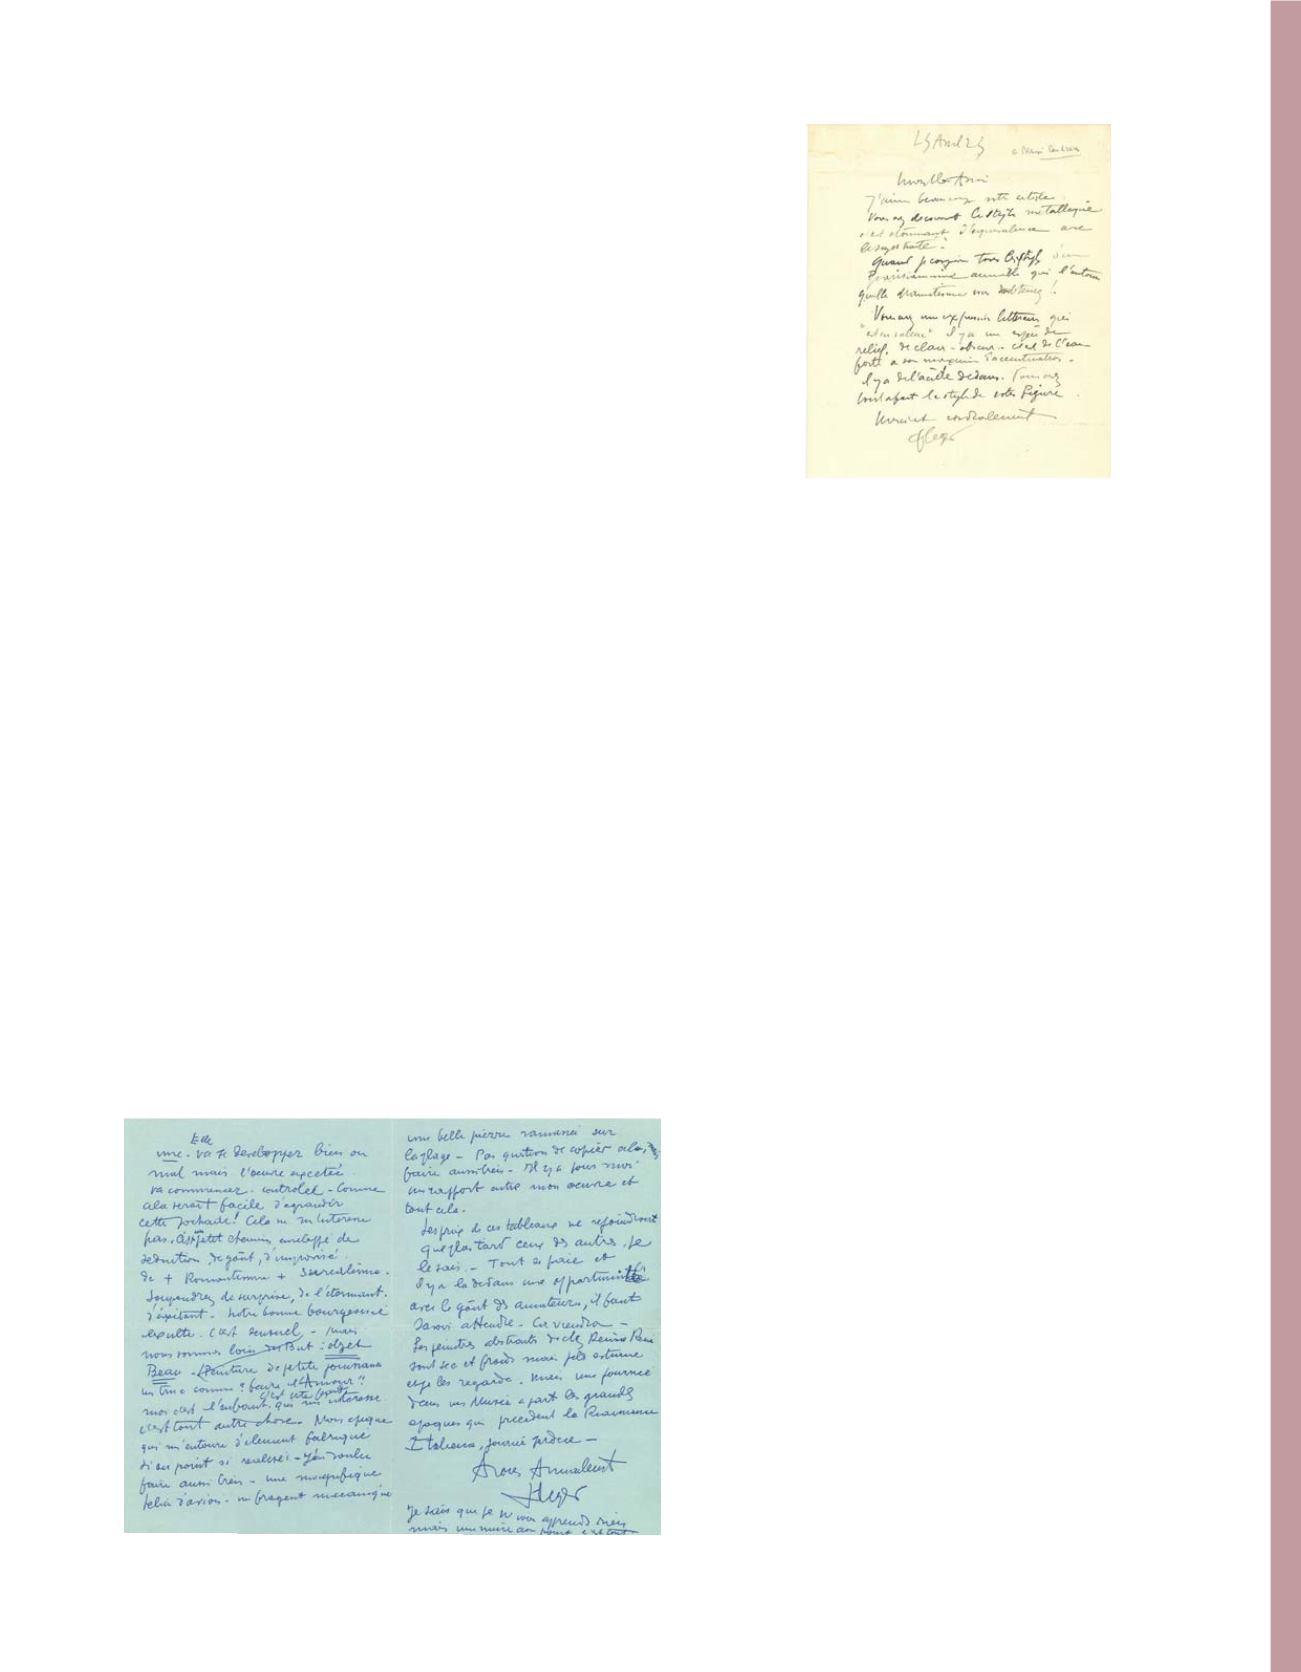 Mon cher Ami
J'aime beaucoup votre article.
Vous avez decouvert le style metallique
c'est etonnant d'equivalence avec
le sujet traité.
Quand je
Parisianisme qui l'entoure
quelle !
Vous avez une expression litteraire qui
"est en valeur" il y a une espèce de
relief, de clair-obscur - c'est de l'eau
forte a son maximum d'accentuation -
il y a de l'acide dedans. Vous avez
tout a fait le style de votre figure.
Vraiment cordialement
FLeger
Elle
une. va se developper bien ou
mal mais l'œuvre
va commencer. controlée - Comme
cela serait facile d'agrandir
cette pochade! Cela ne m'interesse
pas. petit chemin enveloppé de
seduction, de goût, d'improvisé.
de + Romantisme + Surealisme.
de surprise, de l'étonnant.
d'exitant. Notre bonne bourgeoisie
exulte. C'est sensuel - mais
nous sommes loin du But : objet
Beau - Peinture de petite jouissance
un truc comme "faire l'Amour"
moi c'est l'enfant qui m'interesse
c'est tout autre chose. Mon epoque
qui m'entoure d'element fabriqué
si au point si realisé - J'ai voulu
faire aussi bien - une magnifique
helice d'avion - un fragment mecanique
une belle pierre ramassée sur
la plage - Pas question de copier cela, mais
faire aussi bien - Il y a pour moi
un rapport entre mon œuvre et
tout cela.
Les prix de ces tableaux ne rejoindront
que plus tard ceux des autres. Je
le sais - Tout se paie et
il y a la dedans une
avec le goût des amateurs, il faut
savoir attendre - Ça viendra -
Les peintres abstraits de chez Denise René
sont sec et froids mais je les estime
et je les regarde. Mais une journée
dans un Musée a part les grandes
epoques qui precedent la Renaissance
Italienne, journée perdue -
FLeger
Je sais que je ne vous apprends rien